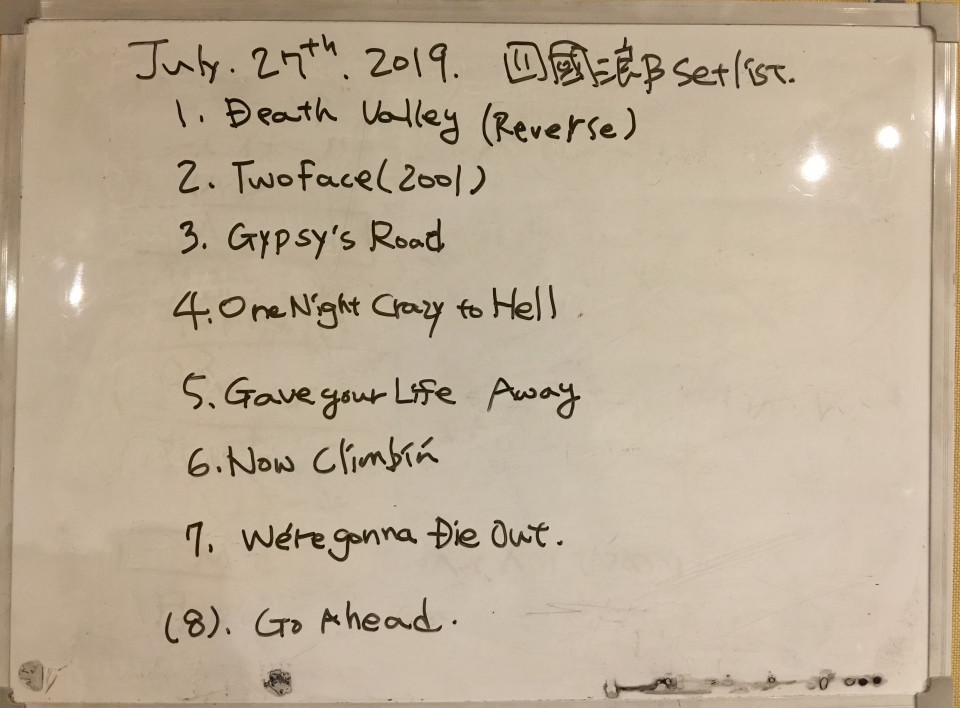 July. 27th. 2019. 四國浪 Setlist.
1. Death Valley (Reverse)
2. Twoface (2001)
3. Gypsy's Road
4. One Night Crazy to Hell
5. Gave your Life Away
6. Now Climbin'
7. We're gonna Die Out.
(8). Go Ahead.